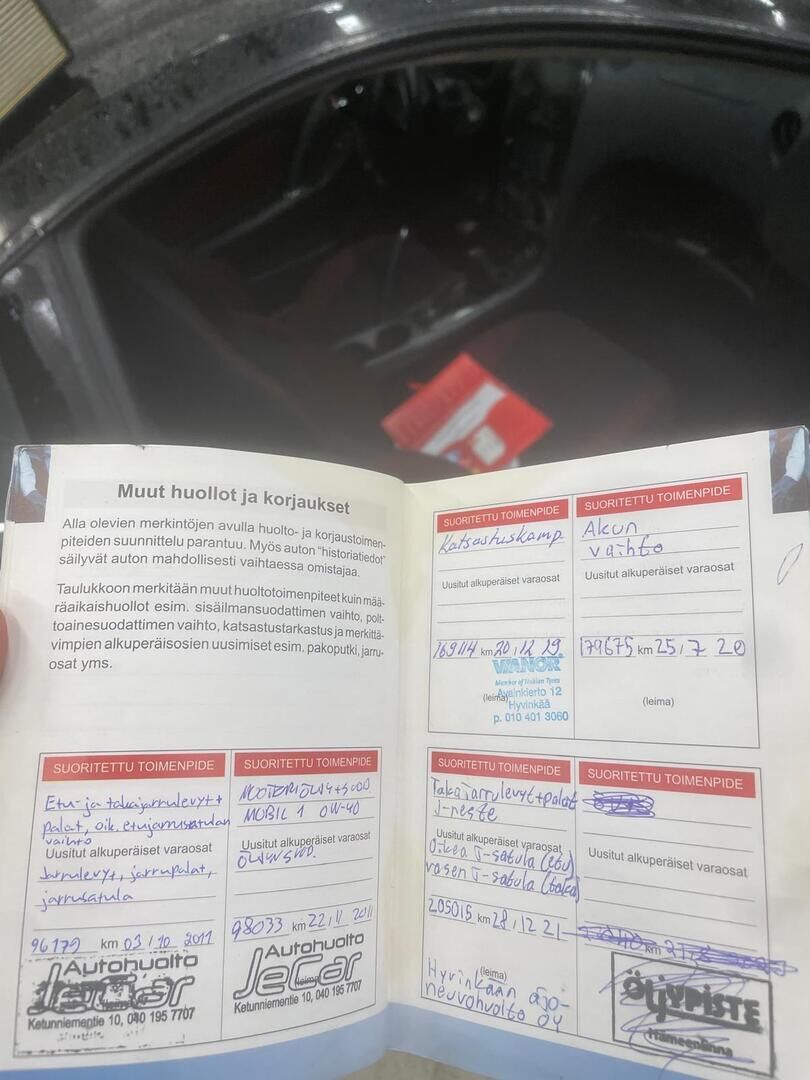 Muut huollot ja korjaukset
Alla olevien merkintöjen avulla huolto- ja korjaustoimen-
piteiden suunnittelu parantuu. Myös auton "historiatiedot"
säilyvät auton mahdollisesti vaihtaessa omistajaa.
Taulukkoon merkitään muut huoltotoimenpiteet kuin mää-
räaikaishuollot esim. sisäilmansuodattimen vaihto, polt-
toainesuodattimen vaihto, katsastustarkastus ja merkittä-
vimpien alkuperäisosien uusimiset esim. pakoputki, jarru-
osat yms.
SUORITETTU TOIMENPIDE
Etu- ja takajarrulevyt+
palat, oik. etujarrusatulan
vaihto
Uusitut alkuperäiset varaosat
Jarrulevyt, jarrupalat,
jarrusatula
96179 km 03 / 10 2011
Autohuolto
JeCar
Ketunniementie 10, 040 195 7707
SUORITETTU TOIMENPIDE
MOOTTERIÖLJY+SUOD
MOBIL 1 0W-40
Uusitut alkuperäiset varaosat
ÖLJYNSUOD.
98033 km 22 / 11 2011
Autohuolto
JeCar
(leima)
Ketunniementie 10, 040 195 7707
SUORITETTU TOIMENPIDE
Katsastuskamp.
Uusitut alkuperäiset varaosat
169114 km 20 / 12 19
VIANOR
Member of Nokian Tyres
(leima) Avainkierto 12
Hyvinkää
p. 010 401 3060
SUORITETTU TOIMENPIDE
Akun
vaihto
Uusitut alkuperäiset varaosat
179675 km 25 / 7 20
(leima)
SUORITETTU TOIMENPIDE
Takajarrulevyt+palat
J-neste
Uusitut alkuperäiset varaosat
Oikea J-satula (etu)
vasen J-satula (taka)
205015 km 28 / 12 21
(leima)
Hyvinkään ajo-
neuvohuolto OY
SUORITETTU TOIMENPIDE
Uusitut alkuperäiset varaosat
km
ÖLJYPISTE
Hämeenlinna